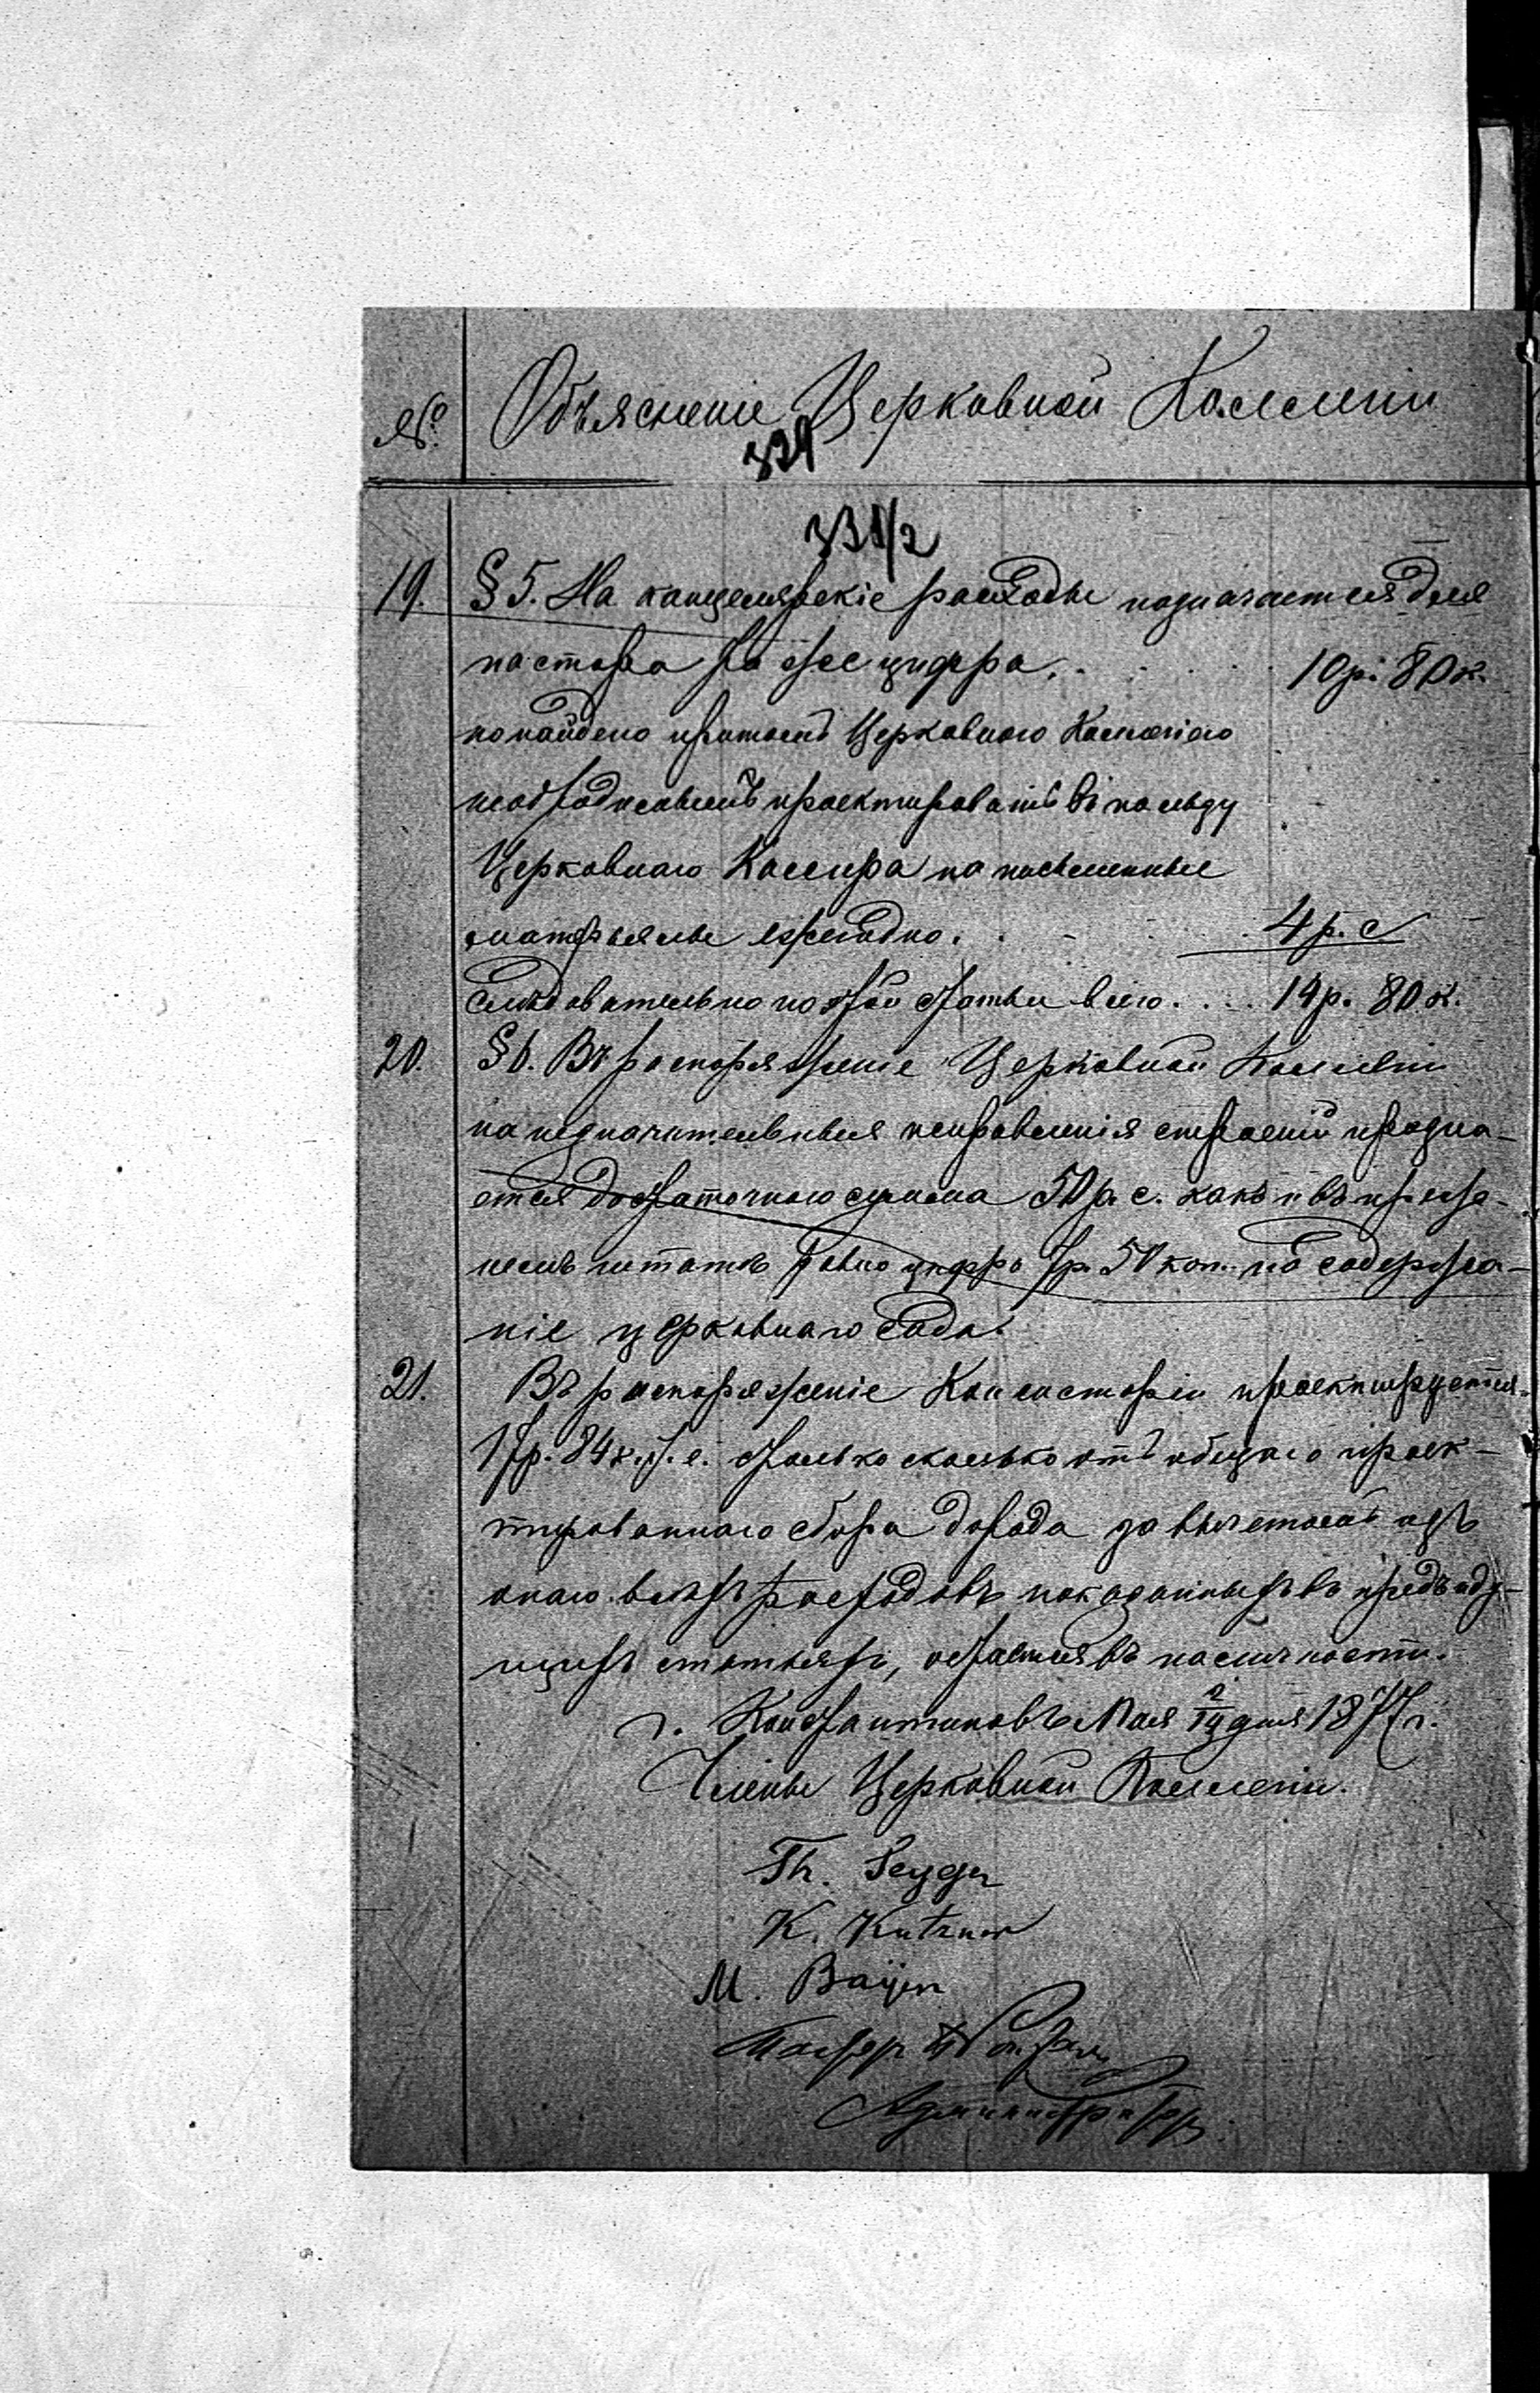 № Объясненіе Церковной Коллегіи
331
331/2
19. § 5. На канцелярскіе расходы назначается для
пастора та же цифра. . . . 10 р. 80 к.
но найдено притомъ Церковною Коллегіею
необходимымъ проектировать въ пользу
Церковнаго Кассира на письменные
матерьялы ежегодно. . - . . 4 р. с
Слѣдовательно по этой статьи всего. . . . 14 р. 80 к.
20. § 6. Въ распоряженіе Церковной Коллегіи
на незначительныя исправленія строеній призна-
ется достаточною сумма 50 р. с. какъ и въ преж-
немъ штатѣ равно цифра 7 р. 50 коп. на содержа-
ніе церковнаго сада.
21. Въ распоряженіе Консисторіи проектируется
17 р. 84 к. т. е. столько сколько отъ общаго проек-
тированнаго сбора дохода за вычетомъ изъ
онаго всѣхъ расходовъ показанныхъ въ предъиду-
щихъ статьяхъ, остается въ наличности.
г. Константиновъ Мая 2/14 дня 1877 г.
Члены Церковной Коллегіи.
Th. Seyger
K. Kutzner
M. Baijer
Пасторъ
Администраторъ